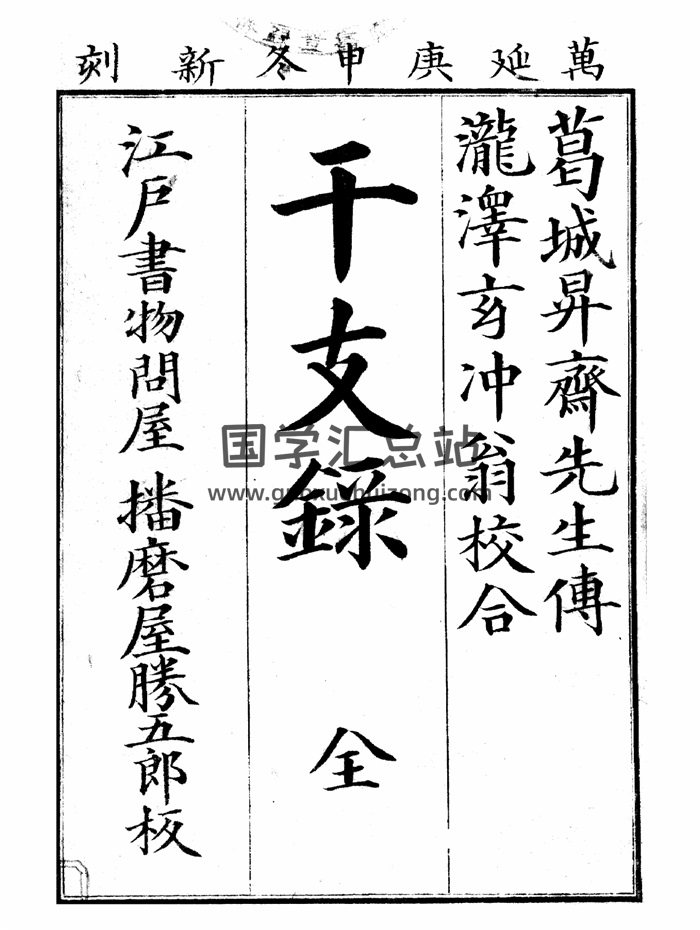 萬延庚申冬新刻
葛城昇齋先生傳
瀧澤玄冲翁校合
干支錄 全
江戸書物問屋 播磨屋勝五郎板
国学汇总站
www.guoxuehuizong.com